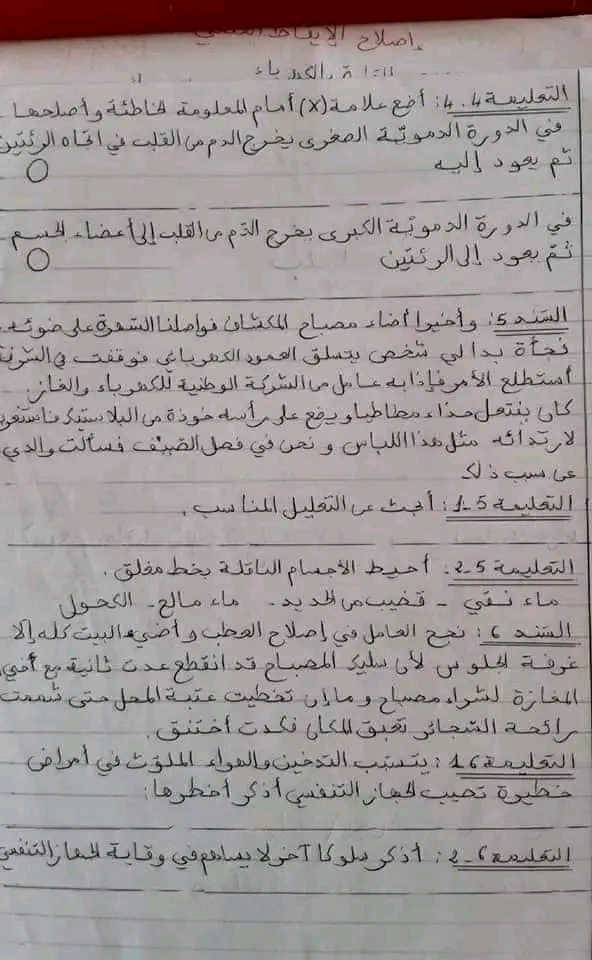 إصلاح الإيقاظ العلمي
التعليمة 4.4: أضع علامة (x) أمام المعلومة الخاطئة وأصلحها
في الدورة الدمويّة الصغرى يخرج الدم من القلب في اتجاه الرئتين
ثم يعود إليه
في الدورة الدمويّة الكبرى يخرج الدّم من القلب إلى أعضاء الجسم
ثمّ يعود إلى الرئتين
السّند 5: وأخيرا أضاء مصباح المكشاف فواصلنا السّهرة على ضوئه.
فجأة بدا لي شخص يتسلق العمود الكهربائي فوقفت في الشرفة
أستطلع الأمر فإذا به عامل من الشركة الوطنية للكهرباء والغاز.
كان ينتعل حذاء مطاطيا ويضع على رأسه خوذة من البلاستيك فاستغربت
لارتدائه مثل هذا اللباس و نحن في فصل الصّيف فسألت والدي
عن سبب ذلك
التعليمة 5-1: أبحث عن التعليل المناسب.
التعليمة 5-2. أحيط الأجسام الناقلة بخط مغلق.
ماء نقي - قضيب من الحديد - ماء مالح - الكحول
السّند 6: نجح العامل في إصلاح العطب و أضيء البيت كله إلا
غرفة الجلوس لأن سليك المصباح قد انقطع عدت ثانية مع أخي
المغازة لشراء مصباح وما إن تخطيت عتبة المحل حتى شممت
رائحة السّجائر تعبق المكان فكدت أختنق.
التعليمة 6-1: يتسبب التدخين والهواء الملوّث في أمراض
خطيرة تصيب الجهاز التنفسي أذكر أخطرها:
التعليمة 6-2: أذكر سلوكا آخر لا يساهم في وقاية الجهاز التنفسي